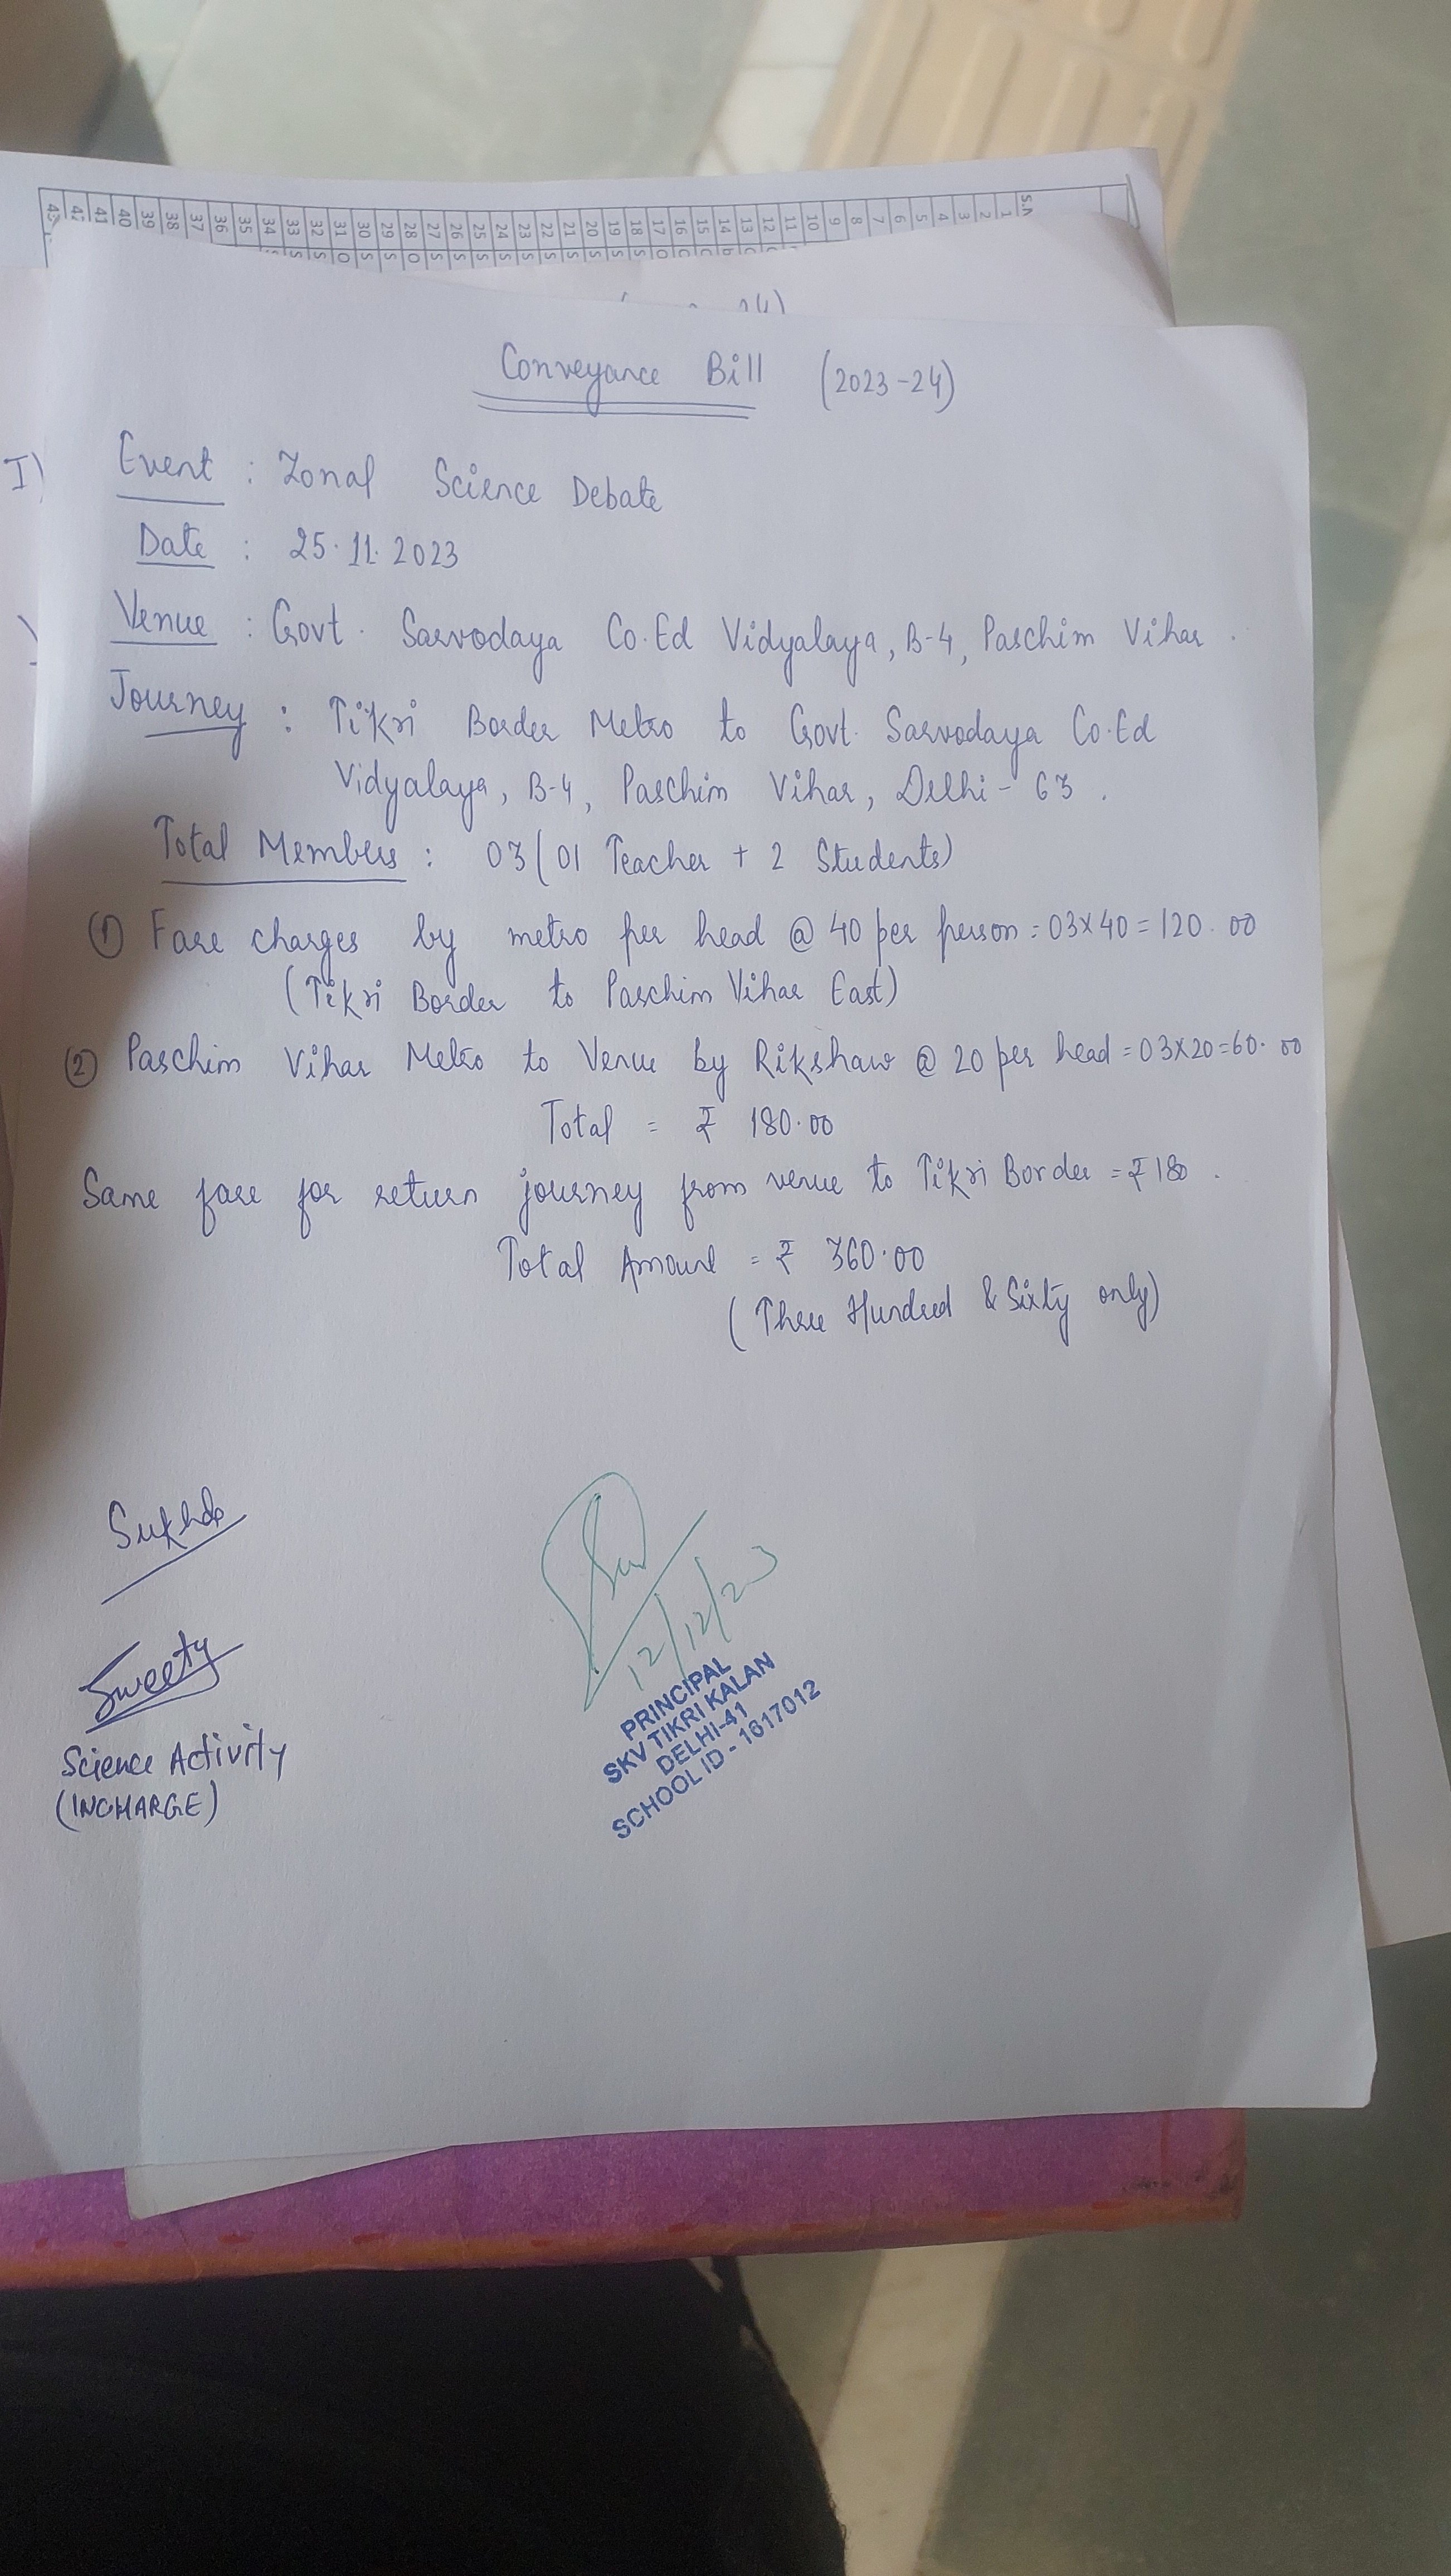 S.N 1 2 3 4 5 6 7 8 9 10 11 12 13 14 15 16 17 18 19 20 21 22 23 24 25 26 27 28 29 30 31 32 33 34 35 36 37 38 39 40 41
24)
I)
Conveyance Bill (2023-24)
Event : Zonal Science Debate
Date : 25.11.2023
Venue : Govt. Sarvodaya Co.Ed Vidyalaya, B-4, Paschim Vihar.
Journey : Tikri Border Metro to Govt. Sarvodaya Co.Ed
Vidyalaya, B-4, Paschim Vihar, Delhi-63.
Total Members : 03(01 Teacher + 2 Students)
(1) Fare charges by metro per head @ 40 per person = 03x40=120.00
(Tikri Border to Paschim Vihar East)
(2) Paschim Vihar Metro to Venue by Rikshaw @ 20 per head = 03x20=60.00
Total = ₹ 180.00
Same fare for return journey from venue to Tikri Border = ₹180.
Total Amount = ₹ 360.00
(Three Hundred & Sixty only)
Sukhda
Sweety
Science Activity
(INCHARGE)
12/12/23
PRINCIPAL
SKV TIKRI KALAN
DELHI-41
SCHOOL ID - 1617012